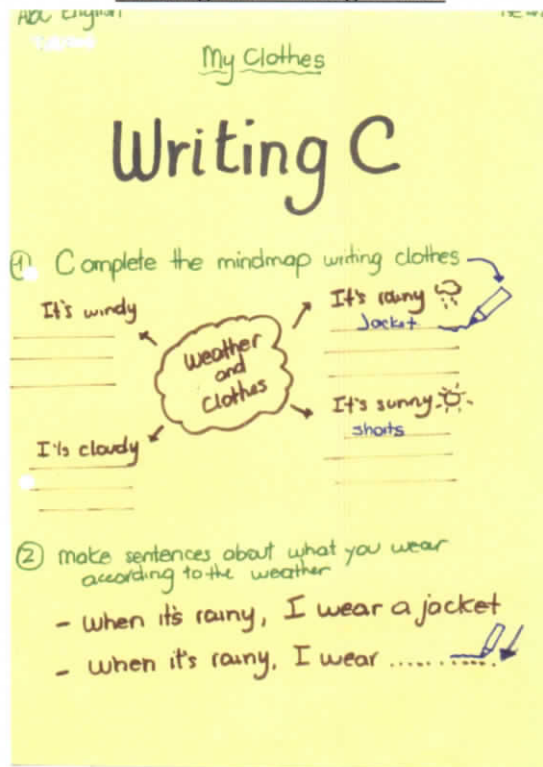 ABC English
My Clothes
Writing C
① Complete the mindmap writing clothes
It's windy
It's rainy
Jacket
Weather and Clothes
It's sunny
shorts
It's cloudy
② make sentences about what you wear
according to the weather
- when it's rainy, I wear a jacket
- when it's rainy, I wear ............